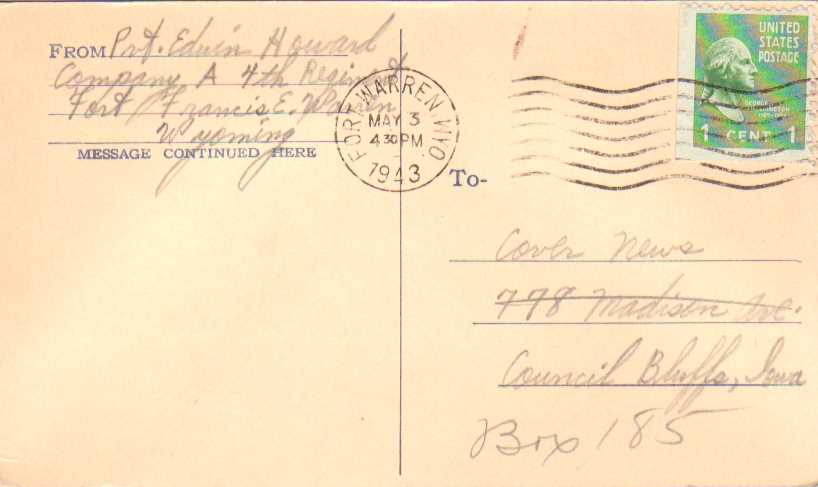 FROM Pvt. Edwin Howard
Company A 4th Regiment
Fort Francis E. Warren
Wyoming
MESSAGE CONTINUED HERE
FORT WARREN WYO.
MAY 3
4 30 PM
1943
UNITED
STATES
POSTAGE
GEORGE
WASHINGTON
1 CENT 1
To-
Cover News
778 Madison Ave.
Council Bluffs, Iowa
Box 185